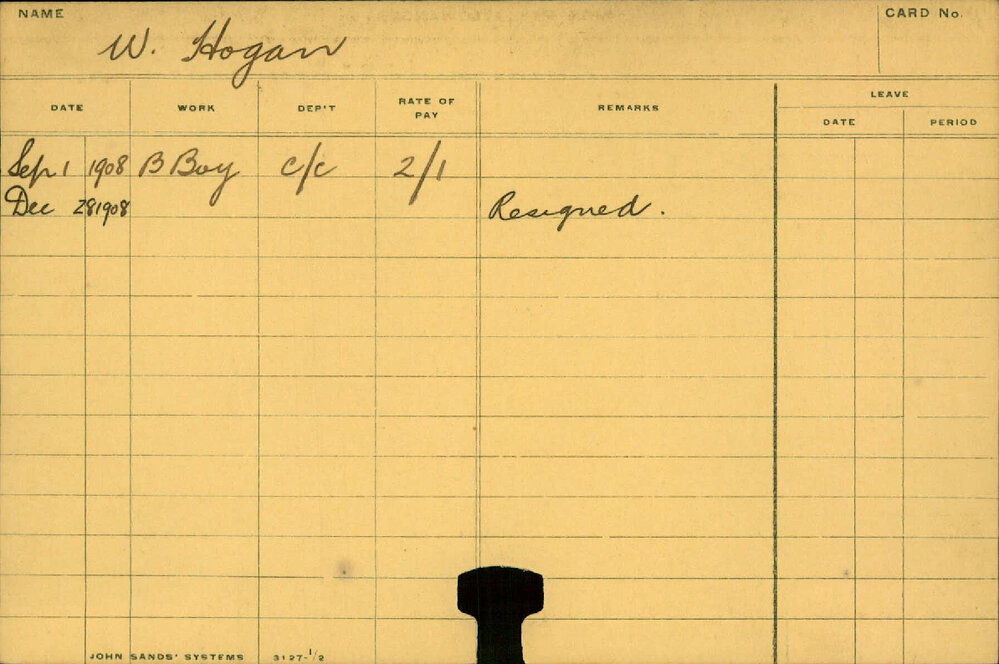 NAME W. Hogan CARD No.
DATE WORK DEP'T RATE OF PAY REMARKS LEAVE
DATE PERIOD
Sep 1 1908 B Boy c/c 2/1
Dec 28 1908 Resigned.
JOHN SANDS' SYSTEMS 3127-1/2